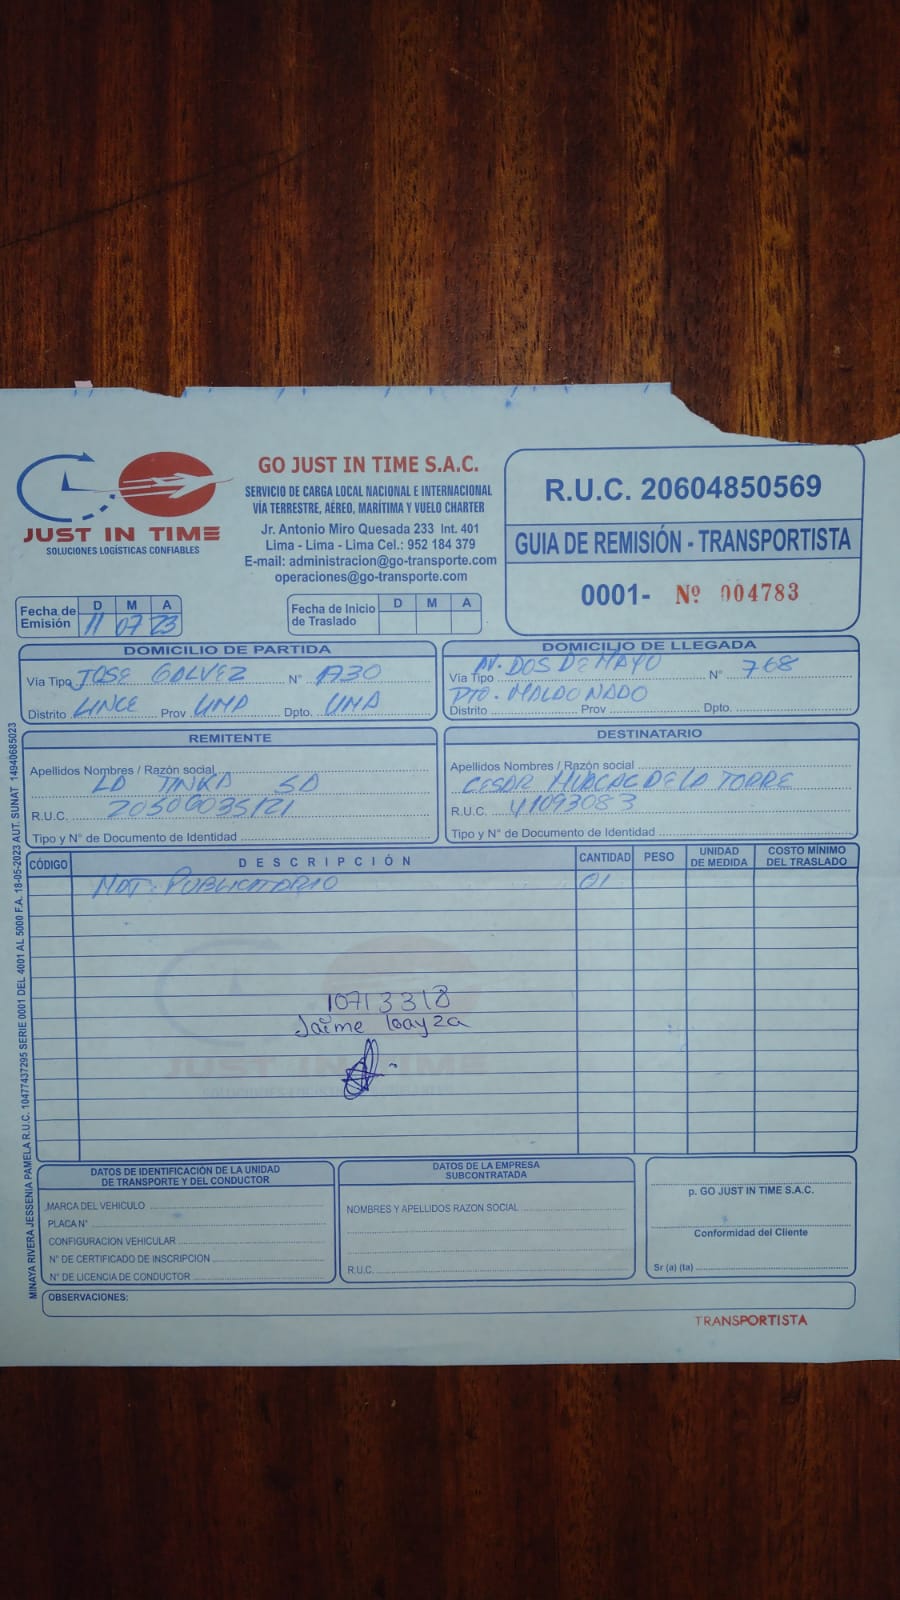 JUST IN TIME
SOLUCIONES LOGÍSTICAS CONFIABLES
GO JUST IN TIME S.A.C.
SERVICIO DE CARGA LOCAL NACIONAL E INTERNACIONAL
VÍA TERRESTRE, AÉREO, MARÍTIMA Y VUELO CHARTER
Jr. Antonio Miro Quesada 233 Int. 401
Lima - Lima - Lima Cel.: 952 184 379
E-mail: administracion@go-transporte.com
operaciones@go-transporte.com
R.U.C. 20604850569
GUIA DE REMISIÓN - TRANSPORTISTA
0001- Nº 004783
Fecha de Emisión D M A
11 07 23
Fecha de Inicio de Traslado D M A
DOMICILIO DE PARTIDA
Via Tipo JOSE GALVEZ N° 1730
Distrito LINCE Prov LIMA Dpto. LIMA
DOMICILIO DE LLEGADA
Via Tipo AV. DOS DE MAYO N° 768
PTO. MALDONADO
Distrito Prov Dpto.
REMITENTE
Apellidos Nombres / Razón social
LA TINKA SA
R.U.C. 20506035121
Tipo y N° de Documento de Identidad
DESTINATARIO
Apellidos Nombres / Razón social
CESAR DE LA TORRE
R.U.C. 41093083
Tipo y N° de Documento de Identidad
CÓDIGO DESCRIPCIÓN CANTIDAD PESO UNIDAD DE MEDIDA COSTO MÍNIMO DEL TRASLADO
MAT. PUBLICITARIO 01
10713318
Jaime loayza
JUST IN TIME
SOLUCIONES
DATOS DE IDENTIFICACIÓN DE LA UNIDAD
DE TRANSPORTE Y DEL CONDUCTOR
MARCA DEL VEHICULO
PLACA N°
CONFIGURACION VEHICULAR
N° DE CERTIFICADO DE INSCRIPCION
N° DE LICENCIA DE CONDUCTOR
DATOS DE LA EMPRESA
SUBCONTRATADA
NOMBRES Y APELLIDOS RAZON SOCIAL
R.U.C.
p. GO JUST IN TIME S.A.C.
Conformidad del Cliente
Sr (a) (ta)
OBSERVACIONES:
TRANSPORTISTA
MINAYA RIVERA JESSENIA PAMELA R.U.C. 10477437295 SERIE 0001 DEL 4001 AL 5000 F.A. 18-05-2023 AUT. SUNAT 14940685023